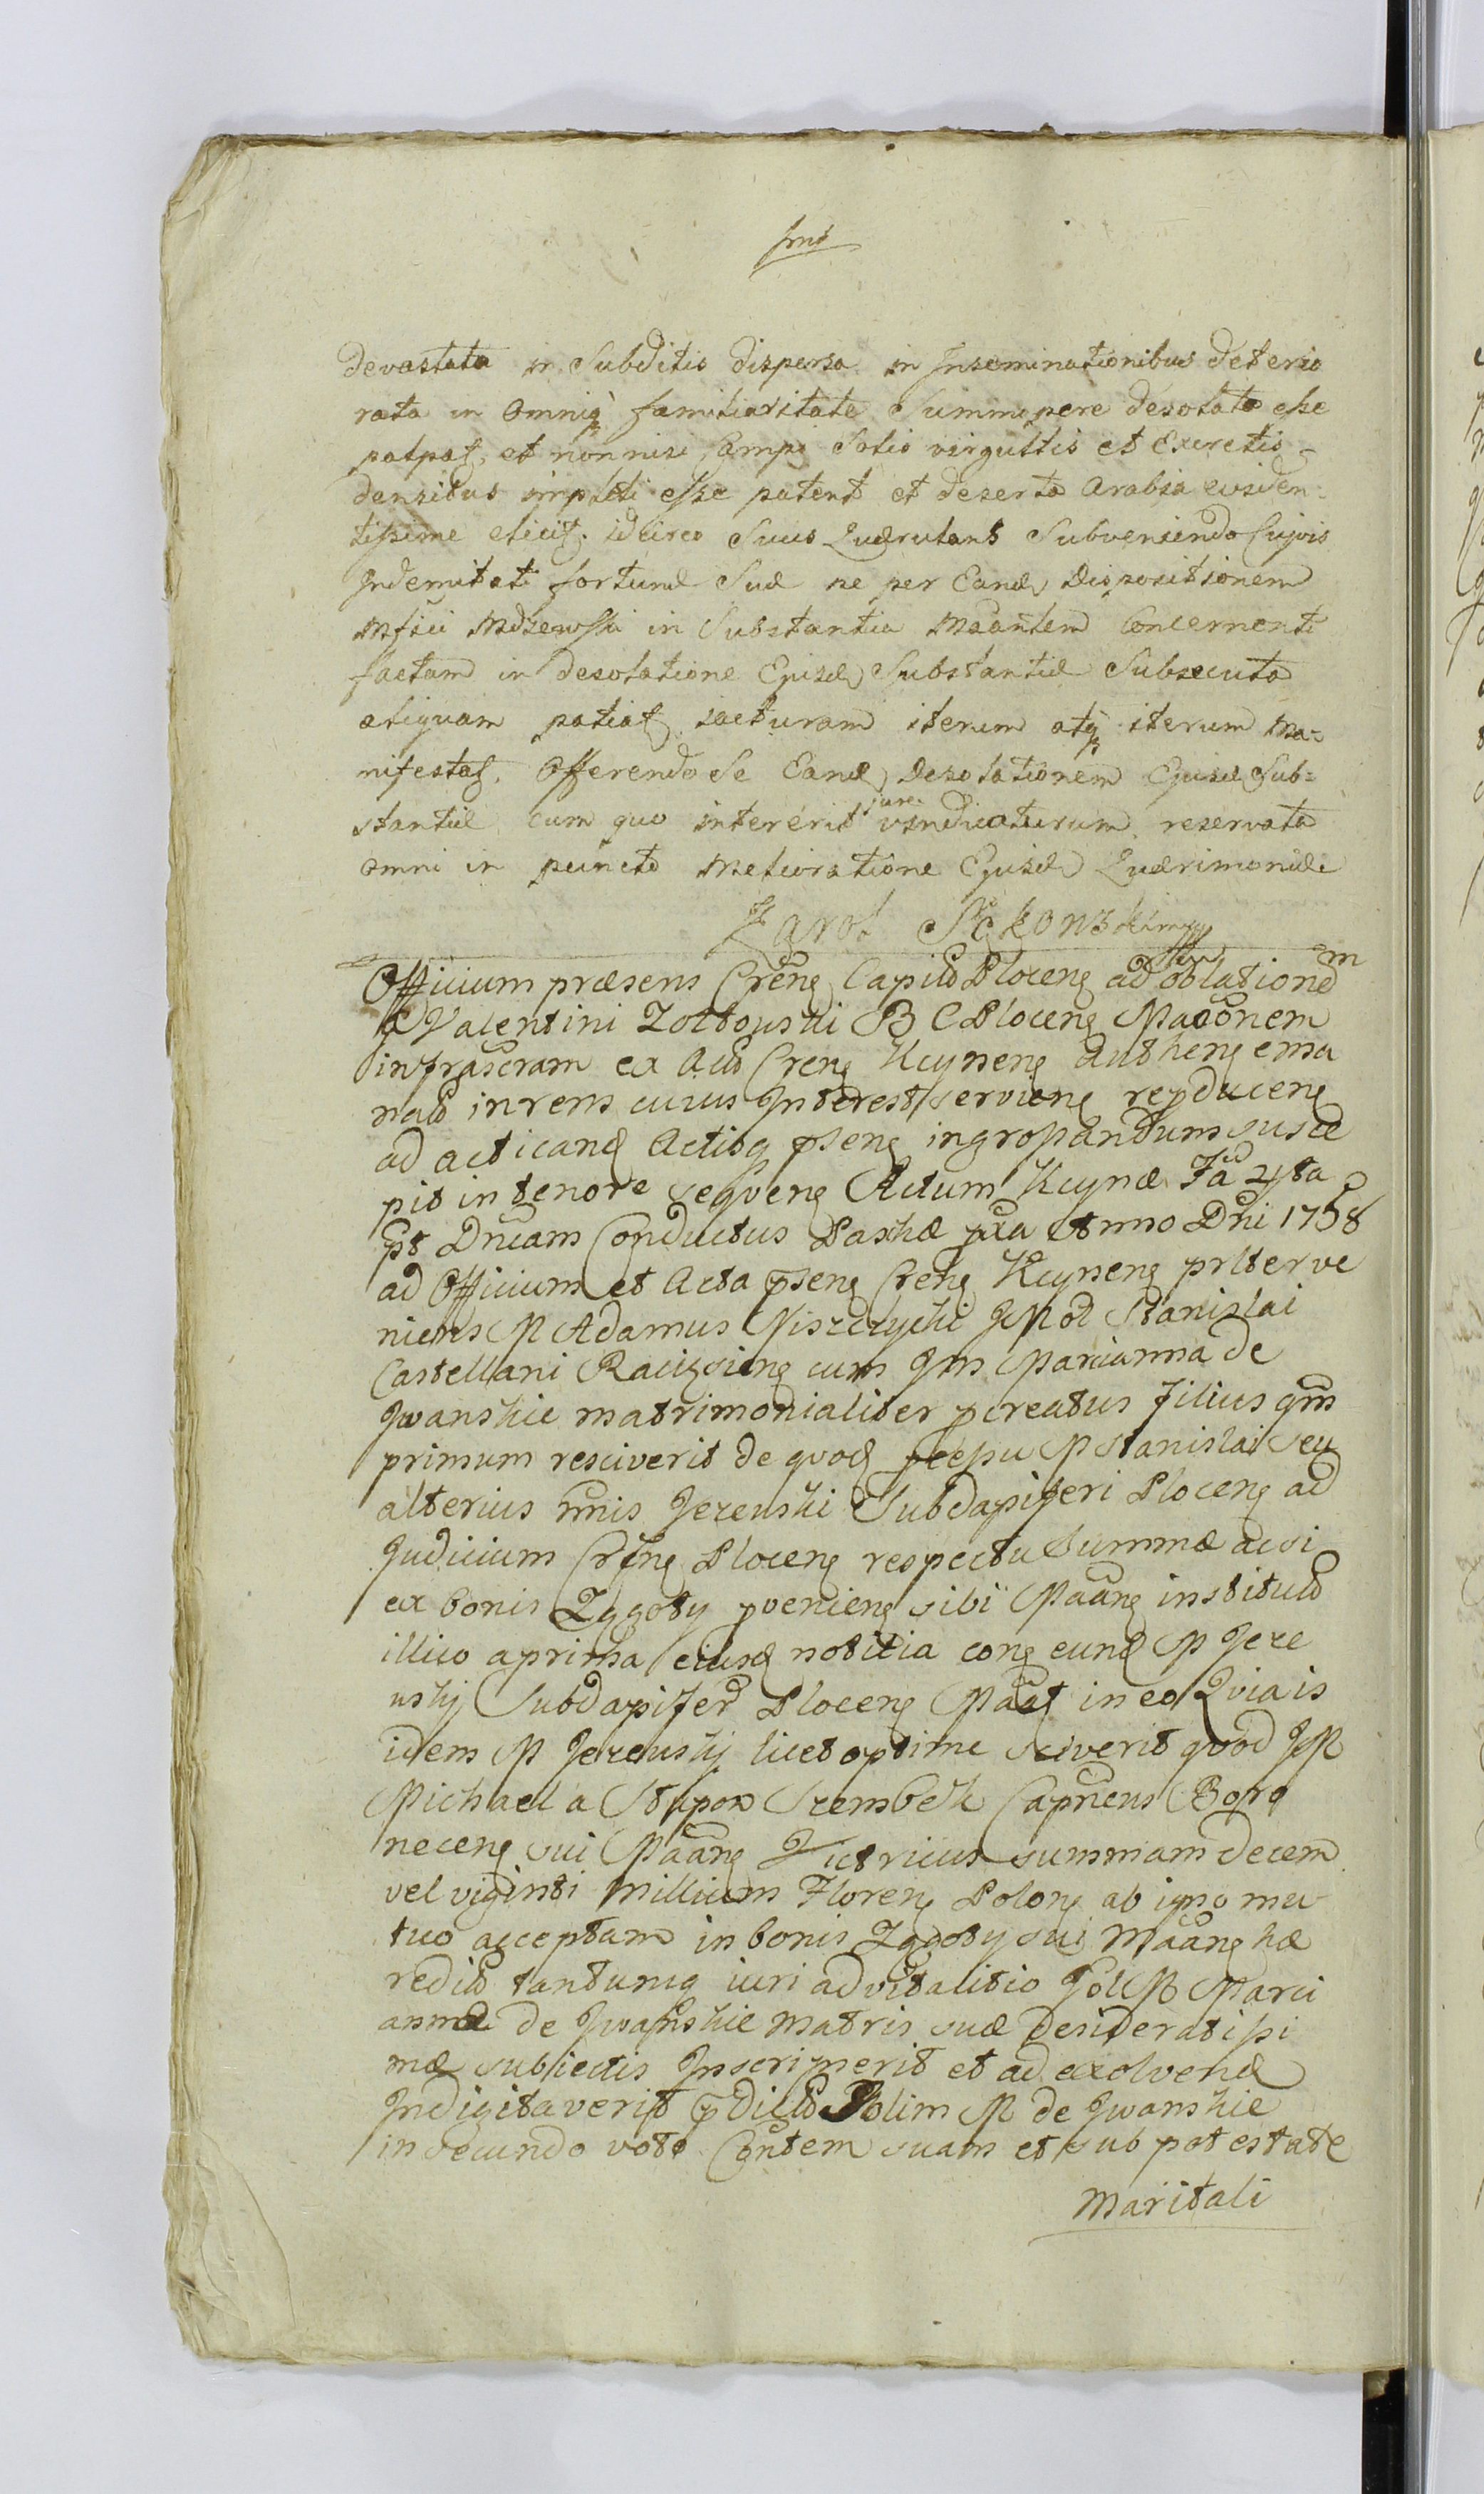 devastata in Subditis dispersa in Inseminationibus deterio
rata in omniq familiaritate Summopere desolata esse
palpat, et non nisi Campi Satis virgultis et Excretis
densibus impleti esse patent et deserta Arabia eviden-
tissime elicit, idcirco Suus Querulans Subveniendo Cujvis
Indemitati fortunæ Suæ ne per Eand Dispositionem
Mfici Mdzewski in Substantia Maantem Concernenti
factam in desolatione Ejusd Substantiæ Subsecuta
aliquam patiat jacturam iterum atq iterum Ma-
nifestat, Offerendo Se Eand Desolationem Ejusd Sub=
stantiæ cum quo intererit jure vindicaturum, reservata
omni in puncto Melioratione Ejusd Querimoniæ
Karol
Officium præsens Crene Capitt Plocen ad oblationem
Valentini Zoltowski B C Plocen Maaonem
infrascram ex Actis Cren Kcynen Authen ema
natt in rem cuius Interest servien repducen
ad acticand Actisq psen ingrossandum susce
pit in tenore seqven Actum Kcynæ Fa 4ta
pt Dncam Conductus Paschæ pxa Anno Dni 1758
ad Officium et Acta psen Cren Kcynen prlter ve
niens M Adamus Niszczycki JM ol Stanislai
Castellani Raciązien cum Jm Marianna de
Jwanskie matrimonialiter pcreatus filius qm
primum resciverit de quod pcessu M Stanislai seu
alterius nnis Jezewski Subdapiferi Plocen ad
Judicium Cren Plocen respectu Summæ acsi
ex bonis Zągoty pvenien sibi Maan institutt
illico a prima eiusd notitia con eund M Jeze
wskj Subdapiferd Plocen Maat in eo Qvia is
idem M Jezewskj licet optime sciverit qvod JM
Michael a Słupow Szembek Capneus Boro
necen sui Maan Victricus summam decem
vel viginti millium Floren Polon ab ipso mu
tuo acceptam in bonis Zągoty sui Maan hæ
redits tantumq iuri advitalitio Jol M Mari
annæ de Jwanskie Matris suæ desideratissi
mæ subiectis Inscripserit et ad exolvend
Indigitaverit pdictt olim M de Jwanskie
in secundo voto Contem suam et sub potestate
Maritali